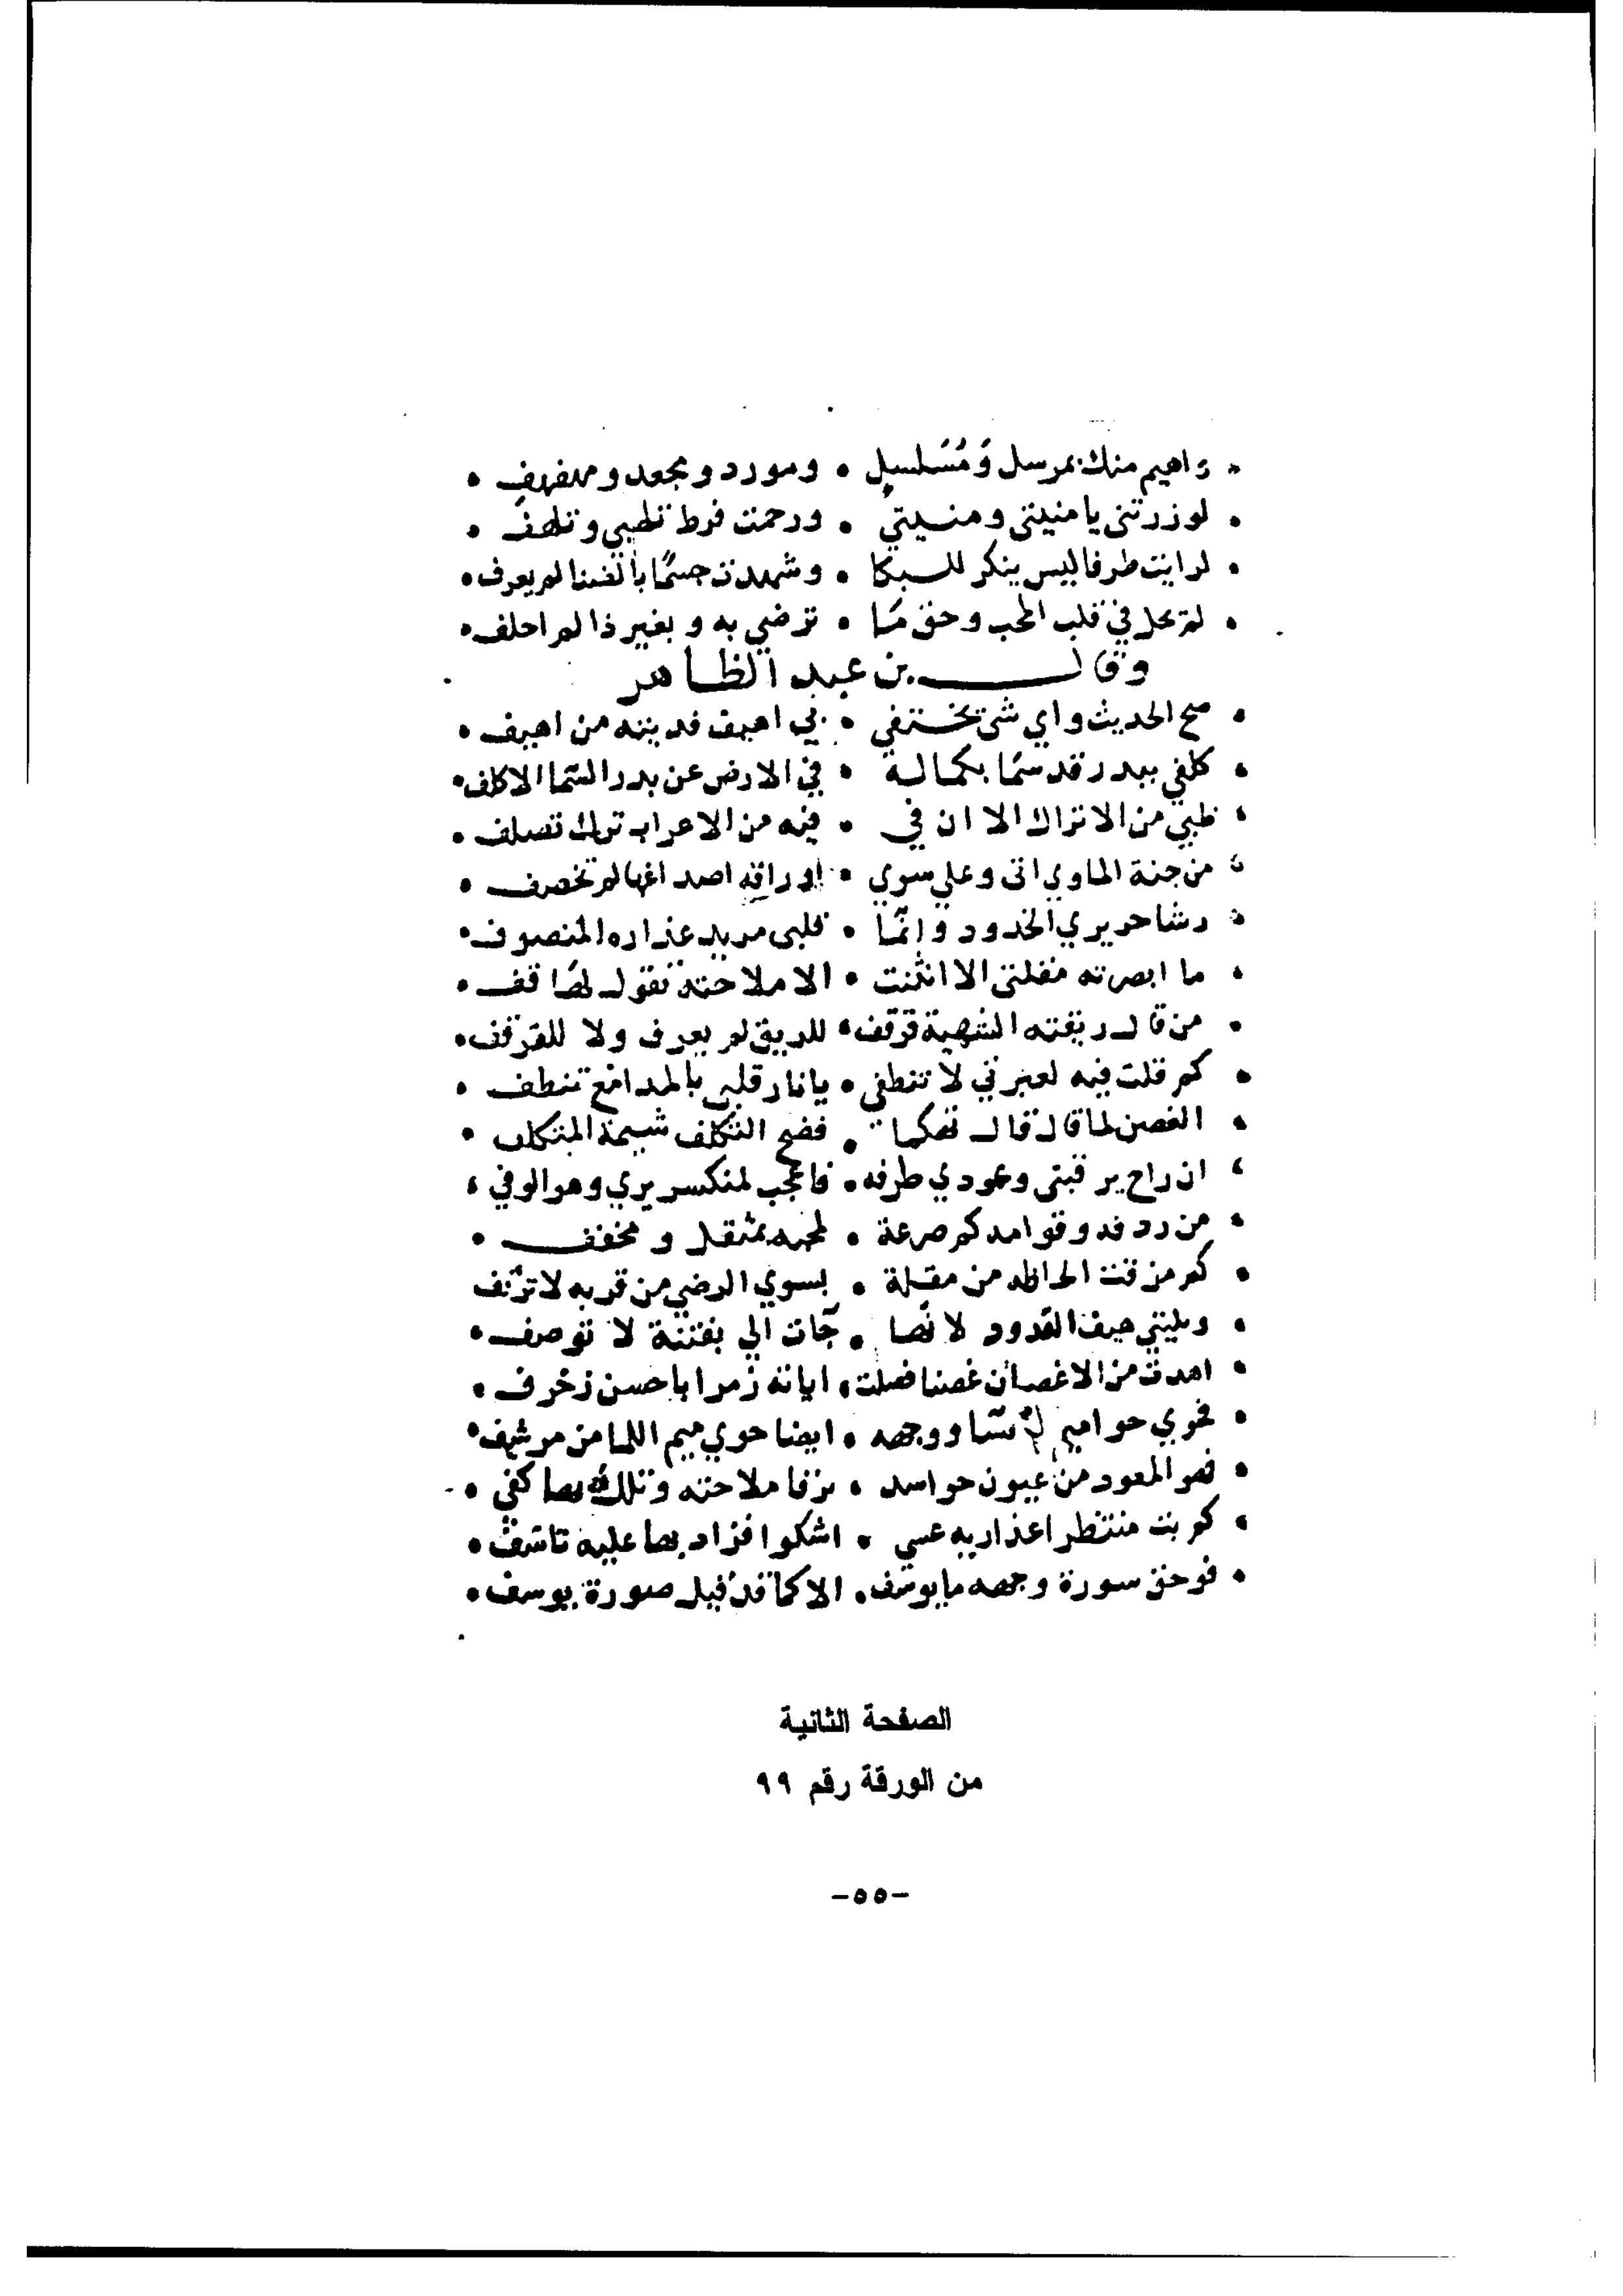 واهيم منك بمرسل ومسلسل • ومورد ومجعد ومهفهف •
لو زرتني يا منيتي ومنيتي • ورحمت فرط تلهبي وتلهف •
لرايت طرفا ليس ينكر للبكا • وشهدت جسما بالضنا لم يعرف •
لم يحل في قلب المحب وحق ما • ترضي به وبغير ذا لم احلف •
وقال بن عبد الظاهر
صح الحديث واي شي تختفي • بي اهيف فديته من اهيف •
كلفي ببدر قد سما بكماله • في الارض عن بدر السما الاكلف •
ظبي من الاتراك الا ان في • فيه من الاعراب ترك تصلف •
من جنة الماوي اتي وعلي سوي • اوراقه اصداغها لم تخصف •
رشا حريري الخدود وانما • قلبي مريد عذاره المتصوف •
ما ابصرته مقلتي الا انثنت • الا ملاحته تقول لها قف •
من قال ريقته الشهية قرقف • للريق لم يعرف ولا للقرقف •
كم قلت فيه لعبرتي لا تنطفي • يا نار قلبي بالمدامع تنطف •
الغصن لما قال قال تهكما • فضح التكلف شيمة المتكلف •
ان راح يرقبتي وعودي طرفه • فاعجب لمنكسر يري وهو الوفي •
من ردفه وقوامه كم صرعة • لمحبه بمثقل ومخفف •
كم مزقت الحاظه من مقلة • بسوي الرضي من قربه لا ترتف
هيف القدود لانها • جآت الي بفتنة لا توصف •
اهدت من الاغصان غصنا فصلت • اياته زمرا باحسن زخرف •
فحوي حواميم ووجهه • ايضا حوي ميم اللما من مرشف •
فهو المعوذ من عيون حواسد • ملاحته وتلك بها كفي •
كم بت منتظرا عذاريه عسي • اشكوا فزاد بها عليه تاسف •
فوحق سورة وجهه ما يوسف • الا كما قد قيل صورة يوسف •
الصفحة الثانية
من الورقة رقم ٩٩
-٥٥-